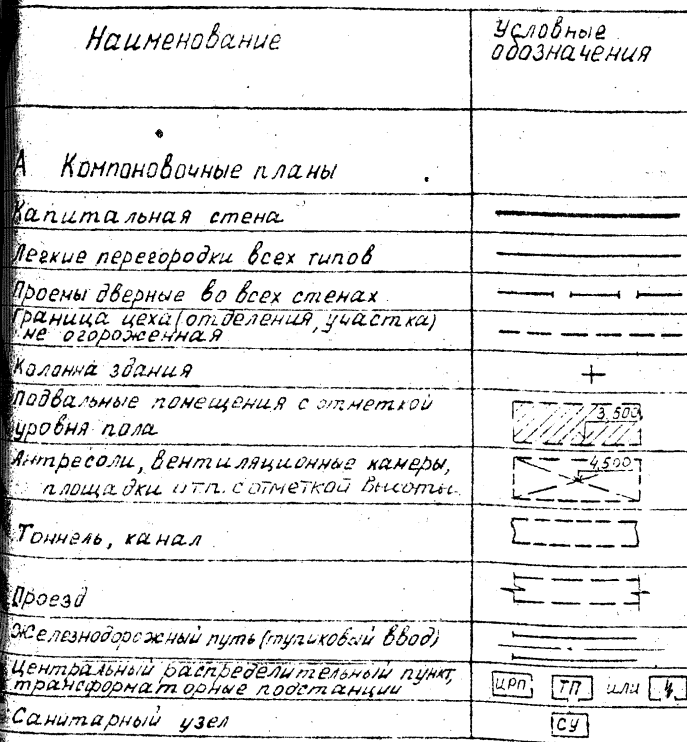 Наименование
Условные
обозначения
А Компоновочные планы
Капитальная стена
Легкие перегородки всех типов
Проемы дверные во всех стенах
Граница цеха (отделения, участка)
не огороженная
Колонна здания
Подвальные помещения с отметкой
уровня пола
3.500
Антресоли, вентиляционные камеры,
площадки и т.п. с отметкой высоты
4,500
Тоннель, канал
Проезд
Железнодорожный путь (тупиковый ввод)
Центральный распределительный пункт,
трансформаторные подстанции
ЦРП ТП или
Санитарный узел
СУ